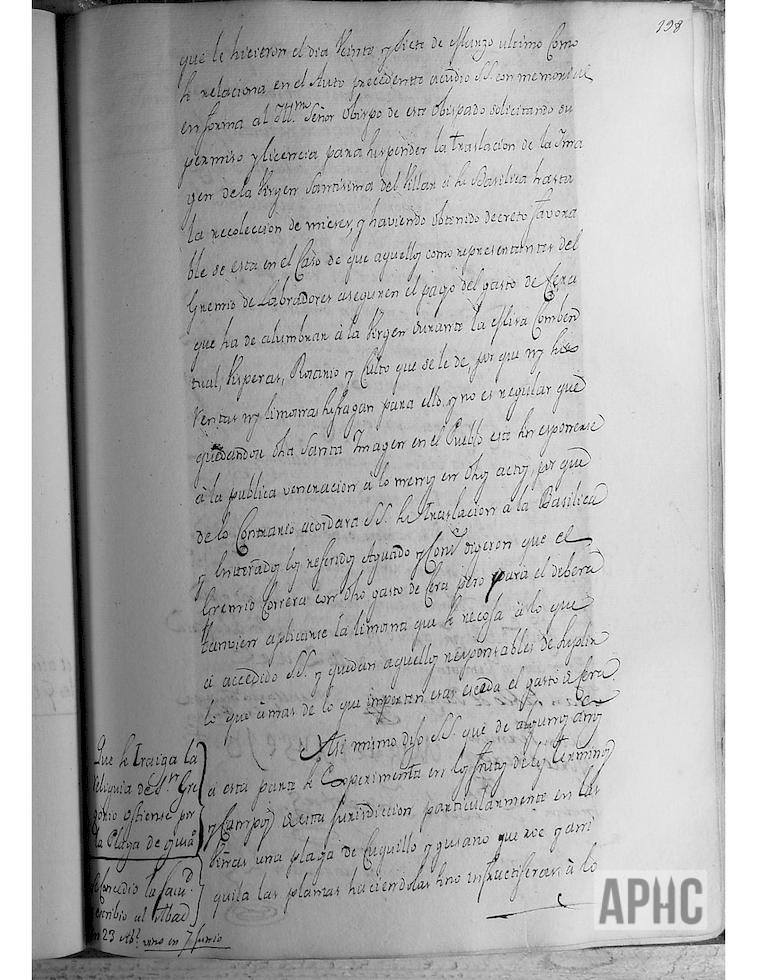 198
que le hicieron el dia Veinte y siete de Marzo ultimo como
se relaciona en el Auto precedente acudio SS. con memorial
en forma al Ill.mo Señor Obispo de este Obispado solicitando su
permiso y licencia para suspender la traslacion de la Yma
gen de la Virgen Santisima del Villar a su Basilica hasta
la recoleccion de mieses, y haviendo obtenido decreto favora
ble se esta en el Caso de que aquellos como representantes del
Gremio de Labradores aseguren el pago del gasto de Cera
que ha de alumbrar à la Virgen durante la Misa Comben
tual, Visperas, Rosario y Culto que se le de, por que ny hai
rentas ny limosnas para ello, y no es regular que
quedandose dha Santa Ymagen en el Pueblo este sin esponerse
à la publica veneracion à lo menos en dhos actos, por que
de lo Contrario acordara SS. su traslacion à la Basilica
y enterados los referidos Aguado y digeron que el
Gremio Correra con dho gasto de Cera pero para el debera
tambien aplicarse la limosna que se recoja à lo que
à accedido SS. y quedan aquellos responsables de suplir
lo que à mas de lo que importen esas esceda el gasto de Cera.
Asi mismo dijo SS. que de algunos años
à esta parte se Experimenta en los frutos de los terminos
y Campos de esta jurisdiccion particularmente en las
Viñas una plaga de Cuquillo y gusano que roe y ani
quila las plantas haciendolas sino infructiferas à lo
Que se traiga la
Reliquia de S.n Gre
gorio Ostiense por
la Plaga de gusa.o
Se Concedio la
escribio al Abad
en 23 Ab.l vino en 7 Junio
APHC